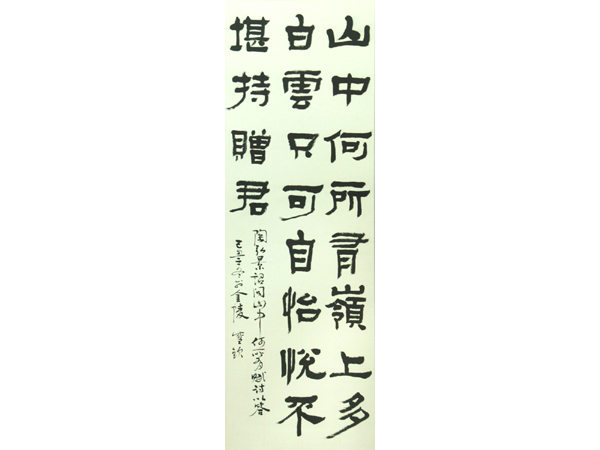 山中何所有嶺上多
白雲只可自怡悅不
堪持贈君
陶弘景詔問山中何所有賦詩以答
冬
金陵